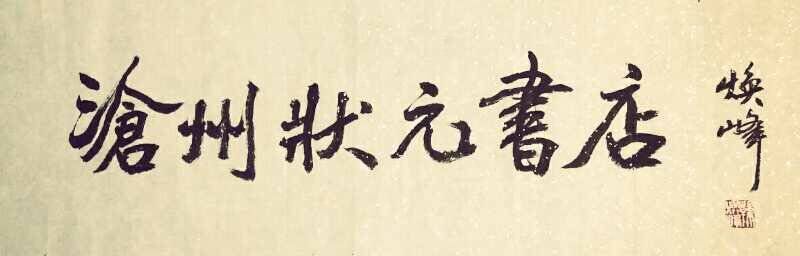 滄州狀元書店
煥峰